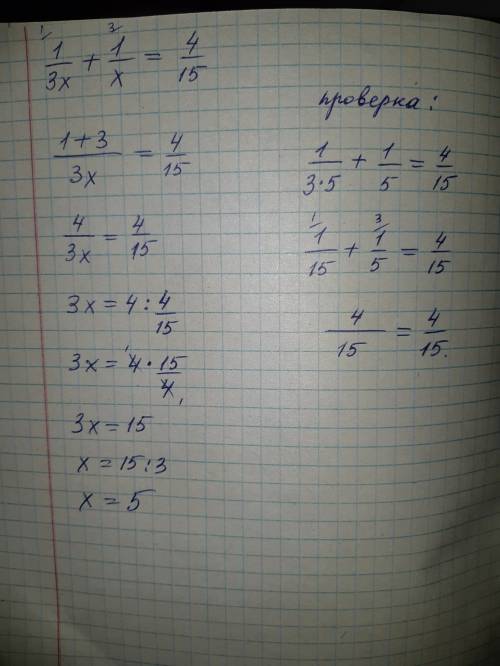 1/ 3/
1/3x + 1/x = 4/15
(1+3)/3x = 4/15
4/3x = 4/15
3x = 4 : 4/15
3x = 4 · 15/4
3x = 15
x = 15:3
x = 5
проверка:
1/(3·5) + 1/5 = 4/15
1/ 3/
1/15 + 1/5 = 4/15
4/15 = 4/15.